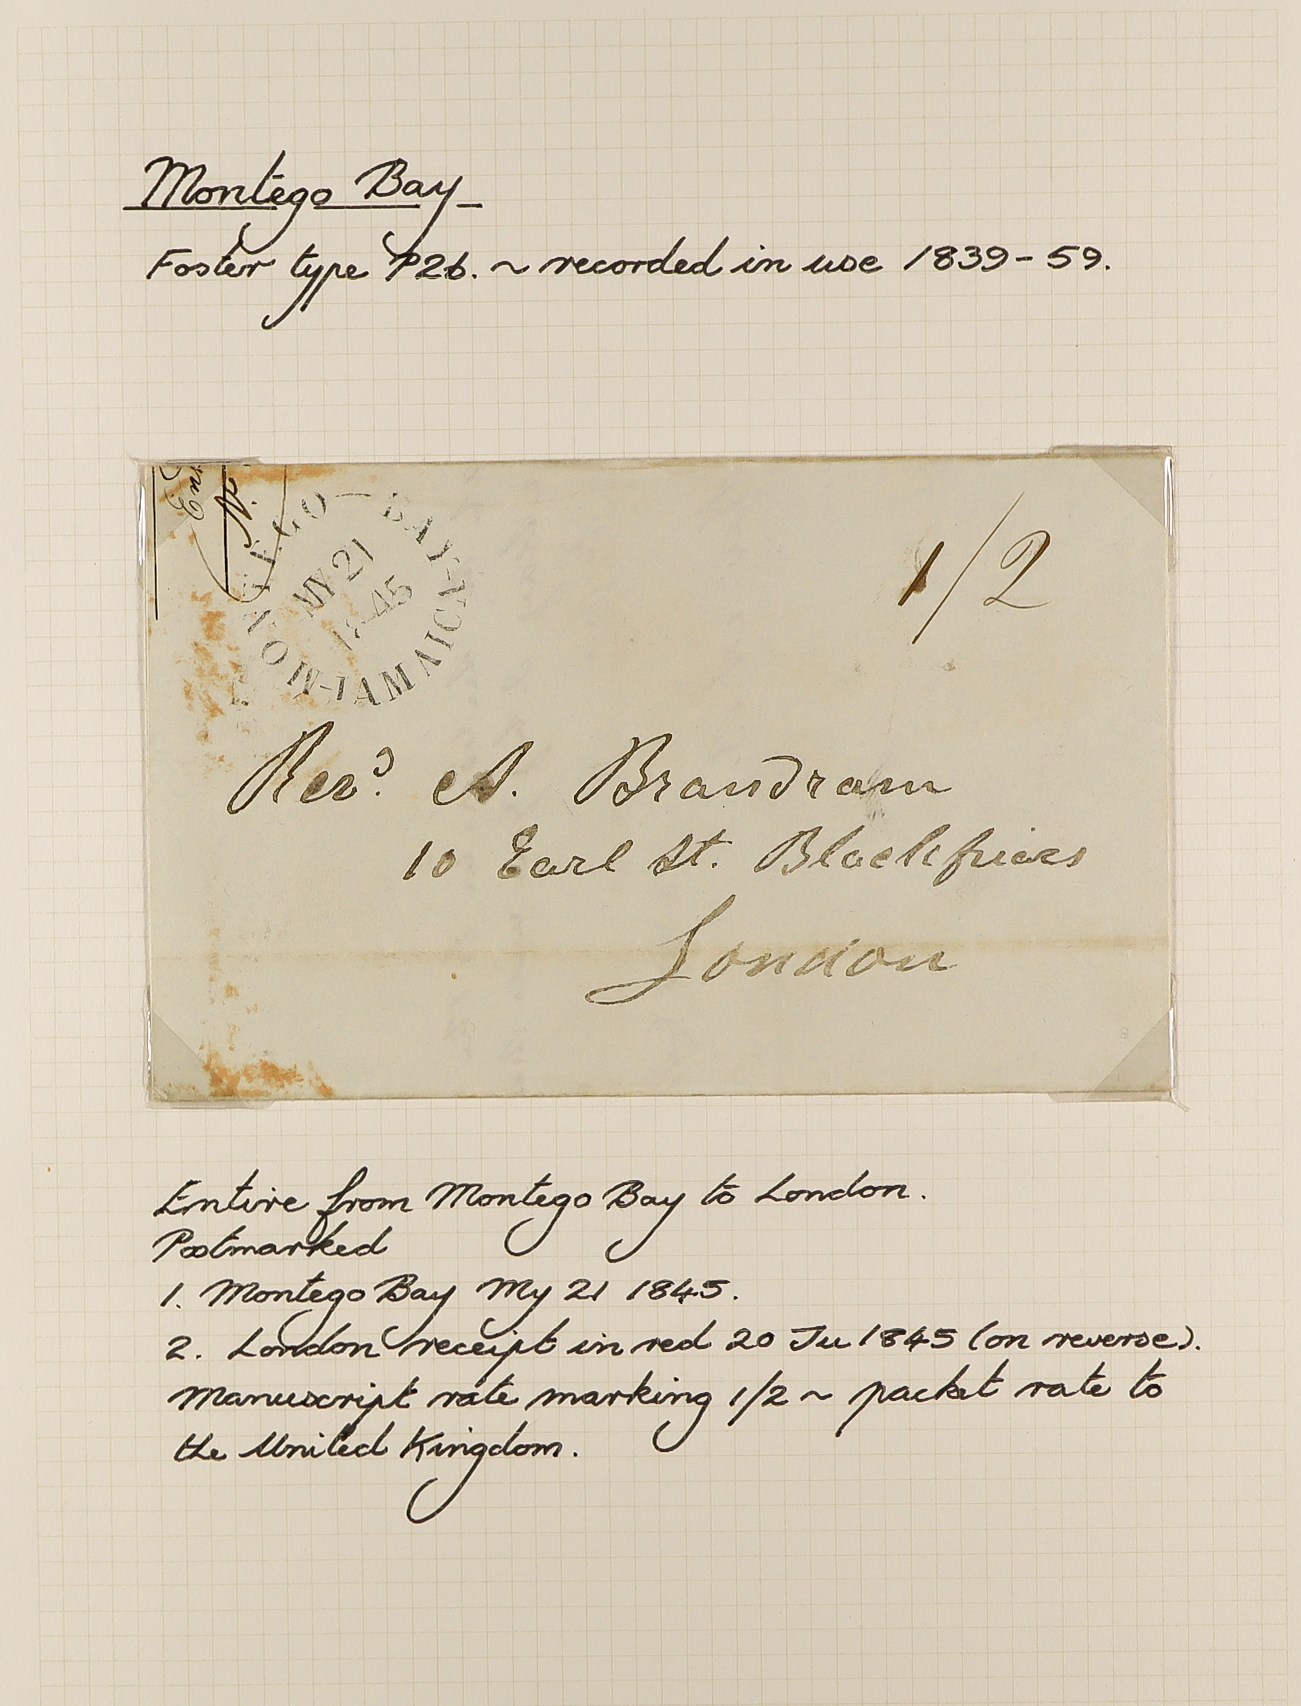 Montego Bay
Foster type P2b. ~ recorded in use 1839-59.
MONTEGO-BAY-JAMAICA-
MY 21
1845
1/2
Revd. A. Brandram
10 Earl St. Blackfriars
London
Entire from Montego Bay to London.
Postmarked
1. Montego Bay My 21 1845.
2. London receipt in red 20 Ju 1845 (on reverse).
Manuscript rate marking 1/2 ~ packet rate to
the United Kingdom.